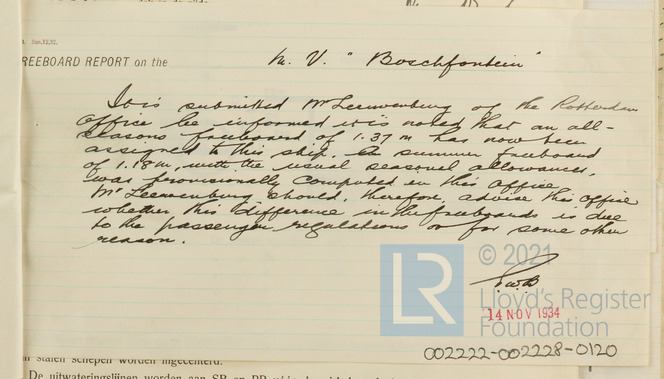 REEBOARD REPORT on the
M. V. "Boschfontein"
It is submitted Mr Leeuwenburg of the Rotterdam
Office be informed it is noted that an all-
seasons freeboard of 1.37 m has now been
assigned to this ship. A summer freeboard
of 1.18m, with the usual seasonal allowances,
was provisionally computed in this Office.
Mr Leeuwenburg should, therefore, advise this Office
whether this difference in the freeboards is due
to the passenger regulations or for some other
reason.
© 2021
LR
Lloyd's Register
Foundation
14 NOV 1934
002222-002228-0120
De uitwateringslijnen worden aan SB en BB